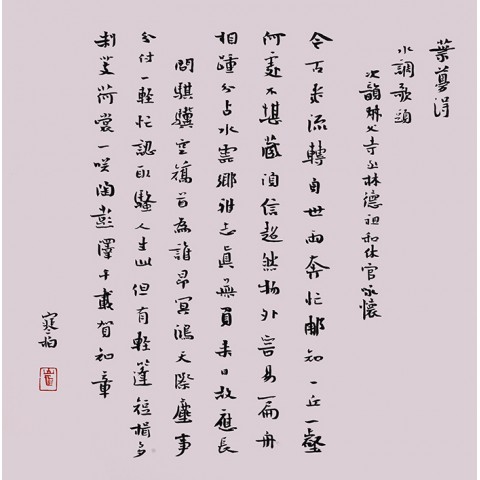 葉夢得
水調歌頭
次韻叔父寺丞林德祖和休官詠懷
今古幾流轉身世兩奔忙那知一丘一壑
何處不堪藏須信超然物外容易扁舟
相踵分占水雲鄉雅志眞無負來日故應長
問騏驥空矯首為誰昂冥鴻天際塵事
分付一輕忙認取騷人生此但有輕篷短楫多
制芰荷裳一咲陶彭澤千載賀知章
寒柏